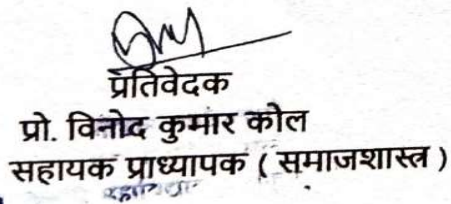 प्रतिवेदक
प्रो. विनोद कुमार कोल
सहायक प्राध्यापक ( समाजशास्त्र )